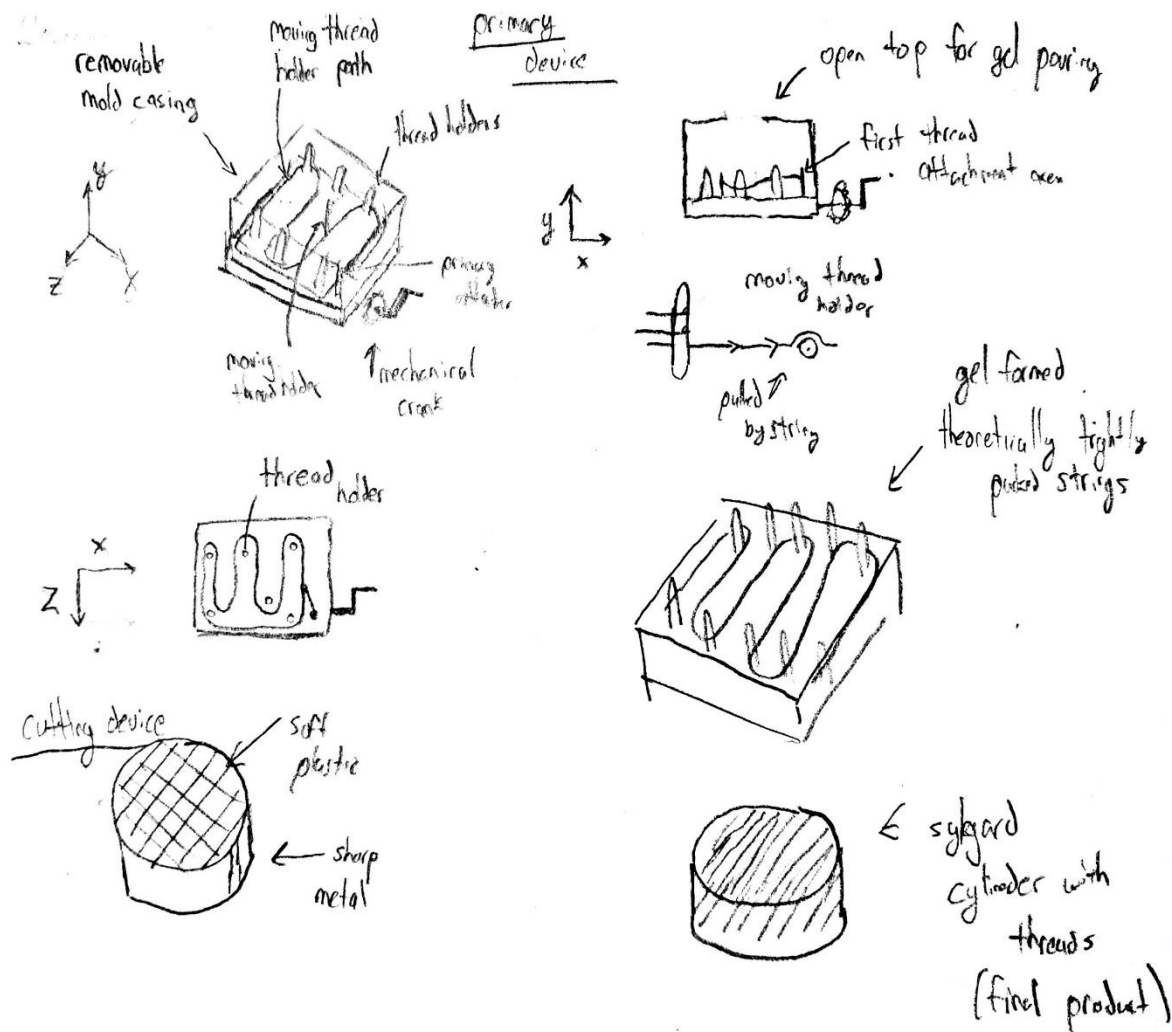 primary
device
removable
mold casing
moving thread
holder path
thread holders
y
Z
X
moving
thread holder
primary
mechanical
crank
open top for gel pouring
first thread
attachment
y
x
moving thread
holder
pulled
by string
gel formed
theoretically tightly
packed strings
thread
holder
x
Z
cutting device
soft
plastic
sharp
metal
sylgard
cylinder with
threads
(final product)